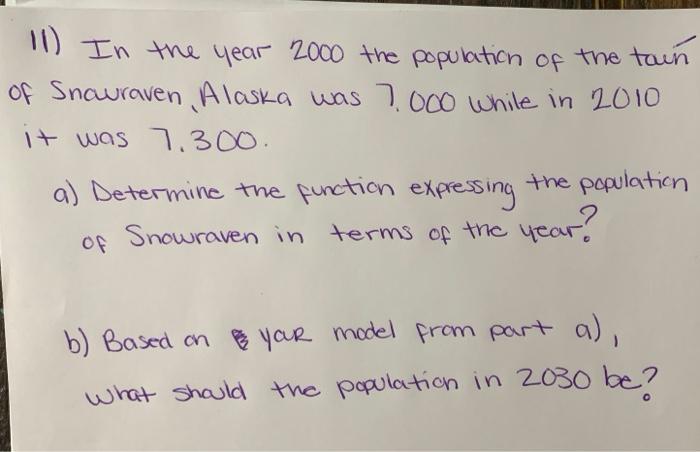 11) In the year 2000 the population of the town
of Snowraven, Alaska was 7.000 while in 2010
it was 7.300.
a) Determine the function expressing the population
of Snowraven in terms of the year?
b) Based on your model from part a),
what should the population in 2030 be?